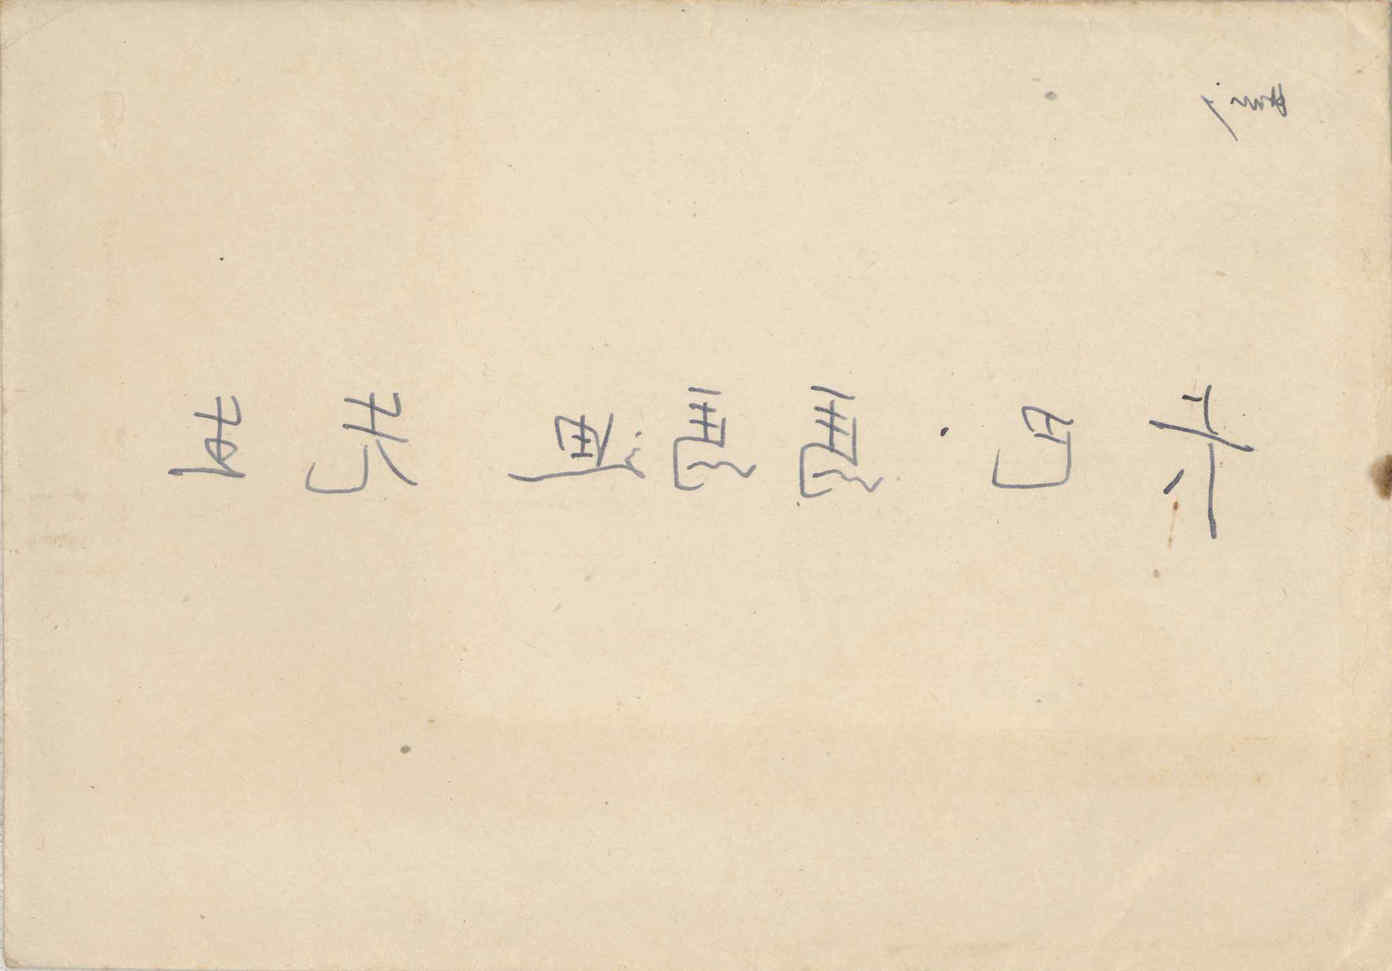 卡巴·馬馬迪先生